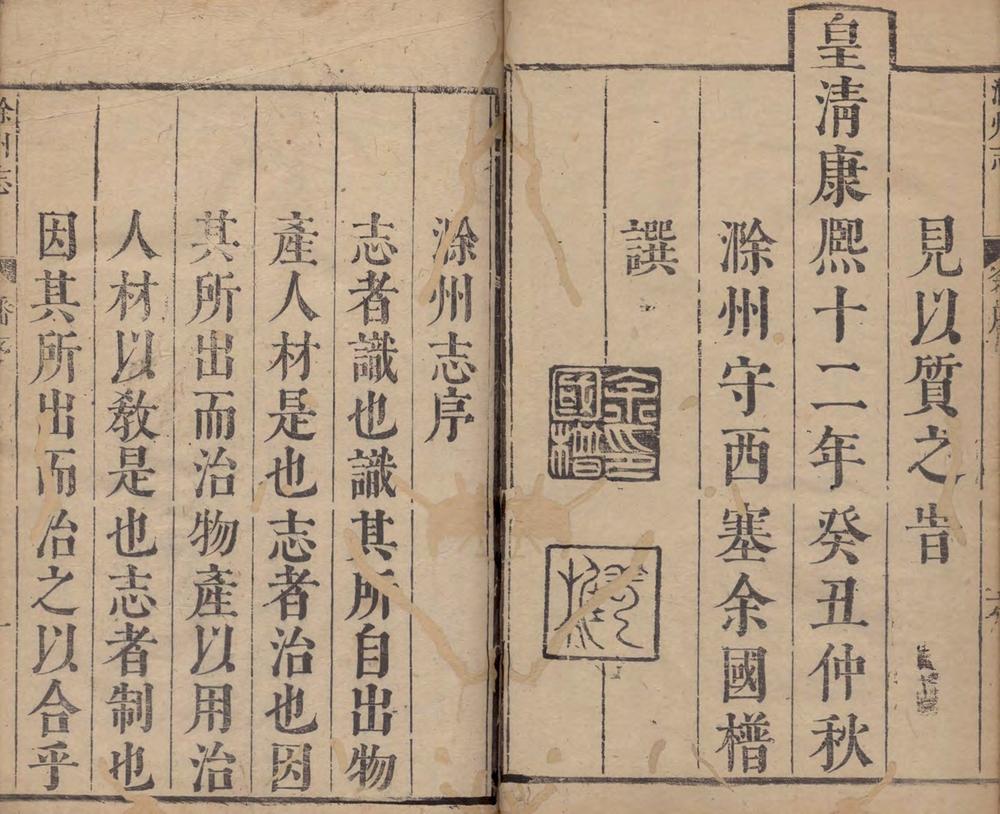 見以質之告
皇清康熙十二年癸丑仲秋
滁州守西塞余國楷
譔
滁州志序
志者識也識其所自出物
產人材是也志者治也因
其所出而治物產以用治
人材以敎是也志者制也
因其所出而治之以合乎
滁州志